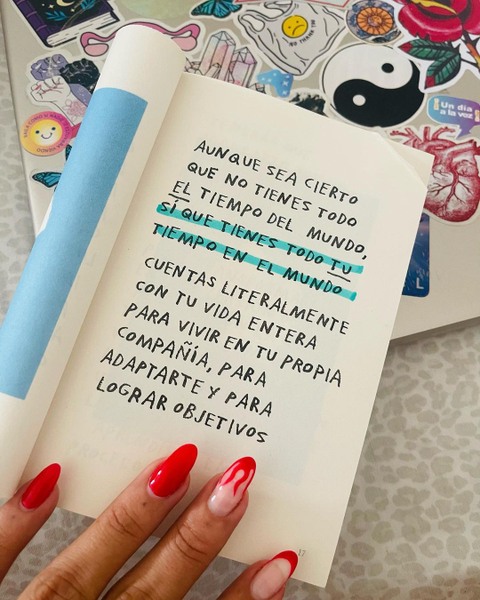 AUNQUE SEA CIERTO
QUE NO TIENES TODO
EL TIEMPO DEL MUNDO,
SÍ QUE TIENES TODO TU
TIEMPO EN EL MUNDO
CUENTAS LITERALMENTE
CON TU VIDA ENTERA
PARA VIVIR EN TU PROPIA
COMPAÑÍA, PARA
ADAPTARTE Y PARA
LOGRAR OBJETIVOS
17
Un día
a la voz